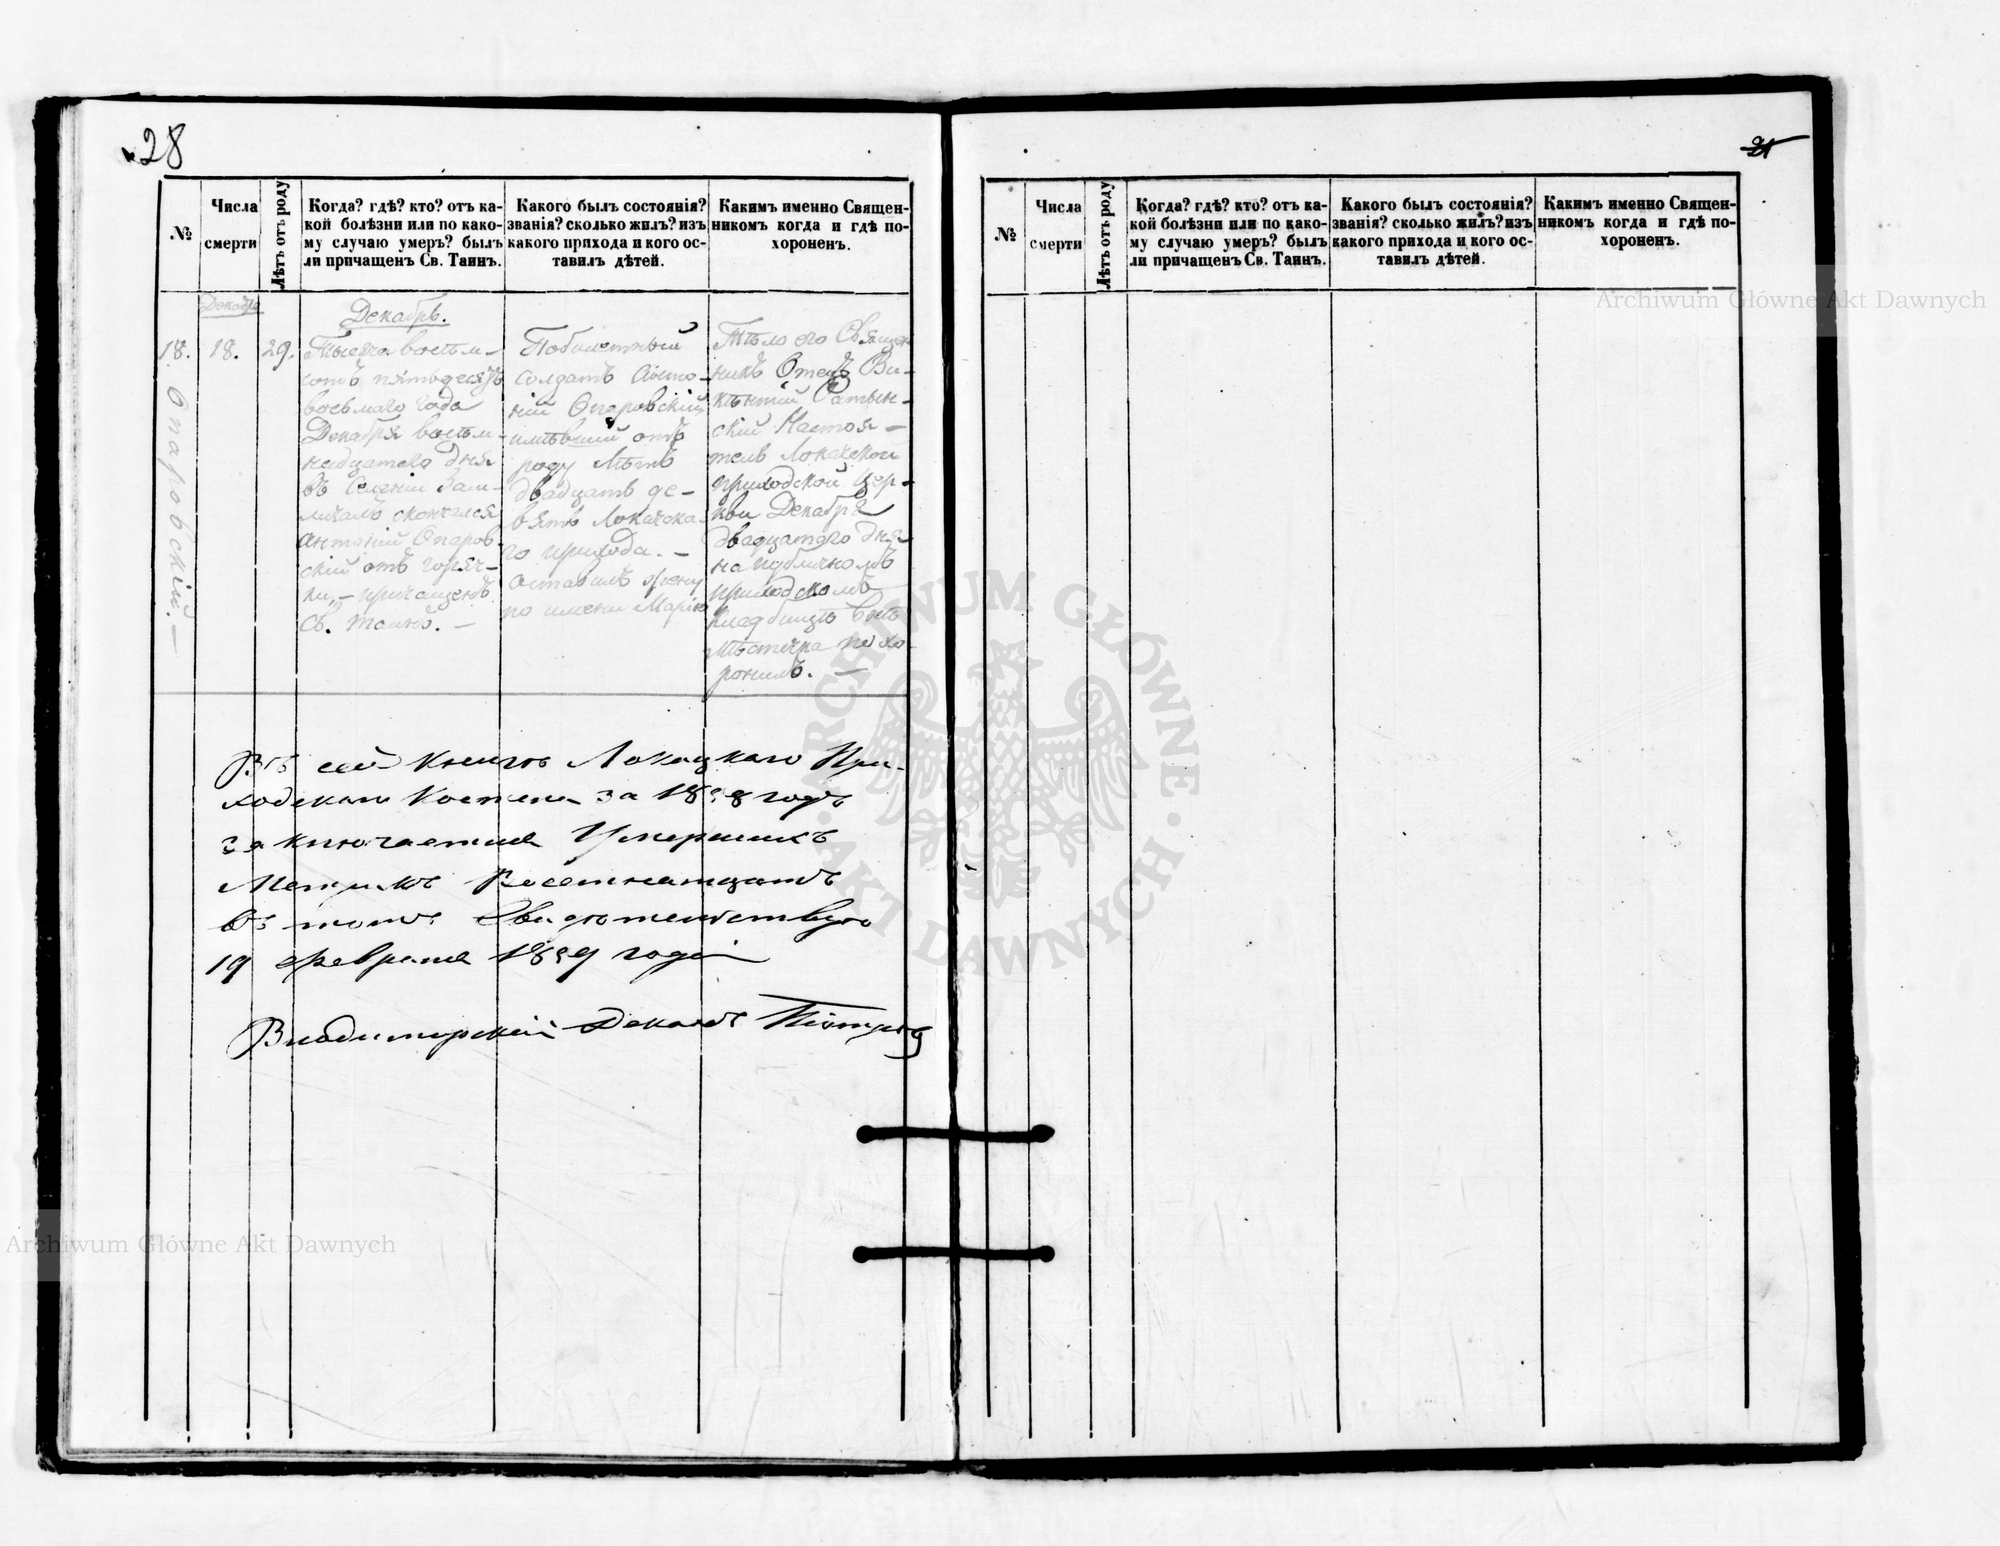 28
№
Числа
смерти
Лѣтъ отъ роду
Когда? гдѣ? кто? отъ ка-
кой болѣзни или по како-
му случаю умеръ? былъ
ли причащенъ Св. Таинъ.
Какого былъ состоянія?
званія? сколько жилъ? изъ
какого прихода и кого ос-
тавилъ дѣтей.
Какимъ именно Священ-
никомъ когда и гдѣ по-
хороненъ.
Декабрь
18.
Опаровскій. —
18.
29.
Декабрь.
Тысяча восъм-
сотъ пятьдесятъ
восьмаго года
Декабря восъм-
надцатаго дня
въ Селеніи
скончался
Антоній Опаров-
скій отъ горяч-
ки, — причащенъ
Св. Таинъ. —
Побилетный
солдатъ Анто-
ній Опаровскій
имѣвшій отъ
роду лѣтъ
двадцать де-
вять Локачска-
го прихода. —
Оставилъ жену
по имени Марію
Тѣло его Священ-
никъ Отецъ Ви-
кентій
скій Настоя-
тель Локачской
приходской Цер-
кви Декабря
двадцатого дня
на публичномъ
приходскомъ
кладбищѣ внѣ
мѣстечка похо-
ронилъ. —
Въ сей Книгѣ Локацкаго При-
ходскаго Костела за 1858 годъ
заключается Умершихъ
Метрикъ Восемнатцать
въ томъ Свидѣтельствую
19 Февраля 1859 года
Владимирскій Деканъ
21
№
Числа
смерти
Лѣтъ отъ роду
Когда? гдѣ? кто? отъ ка-
кой болѣзни или по како-
му случаю умеръ? былъ
ли причащенъ Св. Таинъ.
Какого былъ состоянія?
званія? сколько жилъ? изъ
какого прихода и кого ос-
тавилъ дѣтей.
Какимъ именно Священ-
никомъ когда и гдѣ по-
хороненъ.
Archiwum Główne Akt Dawnych
ARCHIWUM GŁÓWNE · AKT DAWNYCH ·
Archiwum Główne Akt Dawnych